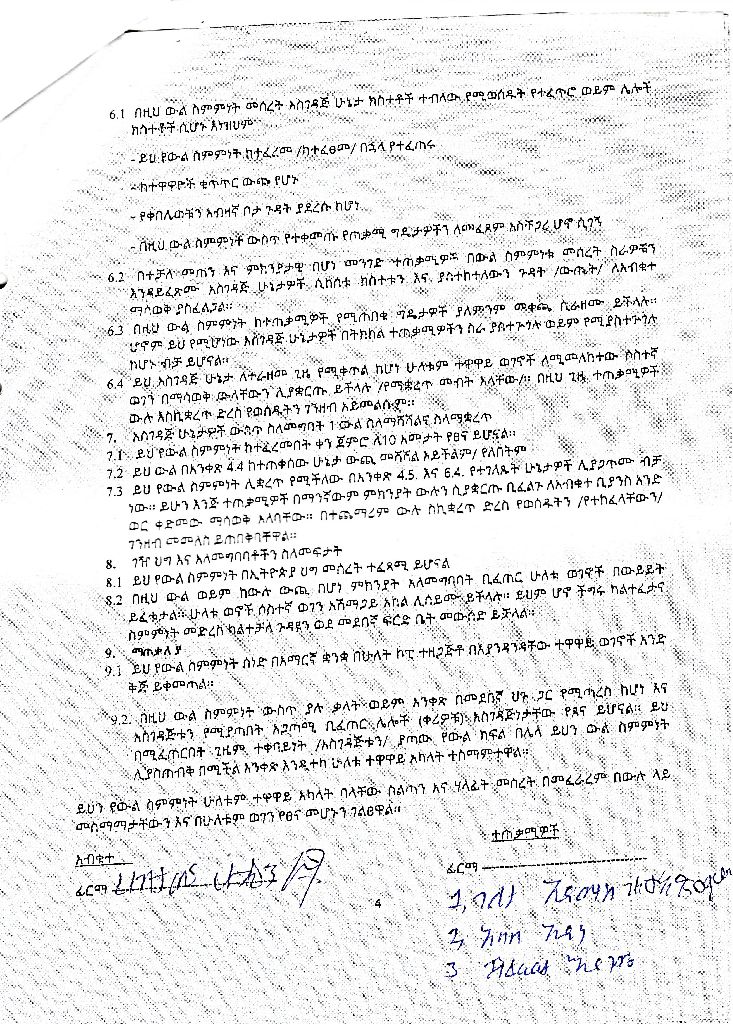 6.1 በዚህ ውል ስምምነት መሰረት አስገዳጅ ሁኔታ ክስተቶች ተብለው የሚወሰዱት የተፈጥሮ ወይም ሌሎች
ክስተቶች ሲሆኑ እነዚህም
- ይህ የውል ስምምነት ከተፈረመ /ከተፈፀመ/ በኋላ የተፈጠሩ
- ከተዋዋዮች ቁጥጥር ውጪ የሆኑ
- የቀበሌውቹን አብዛኛ ቦታ ጉዳት ያደረሱ ከሆነ
- በዚህ ውል ስምምነት ውስጥ የተቀመጡ የጠቃሚ ግዴታዎችን ለመፈጸም አስቸጋሪ ሆኖ ሲገኝ
6.2 በተቻለ መጠን እና ምክንያታዊ በሆነ መንገድ ተጠቃሚዎች በውል ስምምነቱ መሰረት ስራዎቹን
እንዳይፈጽሙ አስገዳጅ ሁኔታዎች ሲከሰቱ ክስተቱን እና ያስከተለውን ጉዳት /ውጤት/ ለእብቁተ
ማሳወቅ ያስፈልጋል።
6.3 በዚህ ውል ስምምነት ከተጠቃሚዎች የሚጠበቁ ግዴታዎች ያለምንም መቀጫ ሊራዘሙ ይችላሉ።
ሆኖም ይህ የሚሆነው አስገዳጅ ሁኔታዎች በትክክል ተጠቃሚዎችን ስራ ያስተጓጎሉ ወይም የሚያስተጓጎሉ
ከሆኑ ብቻ ይሆናል።
6.4 ይህ አስገዳጅ ሁኔታ ለተራዘመ ጊዜ የሚቀጥል ከሆነ ሁለቱም ተዋዋይ ወገኖች ለሚመለከተው ሶስተኛ
ወገን በማሳወቅ ውላቸውን ሊያቋርጡ ይችላሉ /የማቋረጥ መብት አላቸው/። በዚህ ጊዜ ተጠቃሚዎች
ውሉ እስኪቋረጥ ድረስ የወሰዱትን ገንዘብ አይመልሱም።
7. አስገዳጅ ሁኔታዎች ውስጥ ስለመግባት 1 ውል ስለማሻሻልና ስለማቋረጥ
7.1 ይህ የውል ስምምነት ከተፈረመበት ቀን ጀምሮ ለ10 አመታት የፀና ይሆናል።
7.2 ይህ ውል በአንቀጽ 4.4 ከተጠቀሰው ሁኔታ ውጪ መሻሻል አይችልም/ የለበትም
7.3 ይህ የውል ስምምነት ሊቋረጥ የሚችለው በአንቀጽ 4.5. እና 6.4. የተገለጹት ሁኔታዎች ሊያጋጥሙ ብቻ
ነው። ይሁን እንጅ ተጠቃሚዎች በማንኛውም ምክንያት ውሉን ሲያቋርጡ ቢፈልጉ ለእብቁተ ቢያንስ አንድ
ወር ቀድመው ማሳወቅ አለባቸው። በተጨማሪም ውሉ ስኪቋረጥ ድረስ የወሰዱትን /የተከፈላቸውን/
ገንዘብ መመለስ ይጠበቅባቸዋል።
8. ገዥ ህግ እና አለመግባባቶችን ስለመፍታት
8.1 ይህ የውል ስምምነት በኢትዮጵያ ህግ መሰረት ተፈጻሚ ይሆናል
8.2 በዚህ ውል ወይም ከውሉ ውጪ በሆነ ምክንያት አለመግባባት ቢፈጠር ሁለቱ ወገኖች በውይይት
ይፈቱታል። ሁለቱ ወኖች ሶስተኛ ወገን አሸማጋይ አካል ሊሰይሙ ይችላሉ። ይህም ሆኖ ችግሩ ካልተፈታና
ስምምነት መድረስ ካልተቻለ ጉዳዩን ወደ መደበኛ ፍርድ ቤት መውሰድ ይቻላል።
9. ማጠቃለያ
9.1 ይህ የውል ስምምነት ሰነድ በአማርኛ ቋንቋ በሁለት ኮፒ ተዘጋጅቶ በእያንዳንዳቸው ተዋዋይ ወገኖች አንድ
ቅጅ ይቀመጣል።
9.2. በዚህ ውል ስምምነት ውስጥ ያሉ ቃላት ወይም አንቀጽ በመደበኛ ህጉ ጋር የሚጣረስ ከሆነ እና
አስገዳጅቱን የሚያጣበት አጋጣሚ ቢፈጠር ሌሎች (ቀሪዎቹ) አስገዳጅነታቸው የጸና ይሆናል። ይህ
በሚፈጠርበት ጊዜም ተቀባይነት /አስገዳጅቱን/ ያጣው የውል ክፍል በሌላ ይህን ውል ስምምነት
ሊያስጠብቅ በሚችል አንቀጽ እንዲተካ ሁለቱ ተዋዋይ አካላት ተስማምተዋል።
ይህን የውል ስምምነት ሁለቱም ተዋዋይ አካላት ባላቸው ስልጣን እና ሃላፊት መሰረት በመፈራረም በውሉ ላይ
መስማማታቸውን እና በሁለቱም ወገን የፀና መሆኑን ገልፀዋል።
ተጠቃሚዎች
እብቁተ
ፊርማ
ፊርማ
4
1,
2,
3